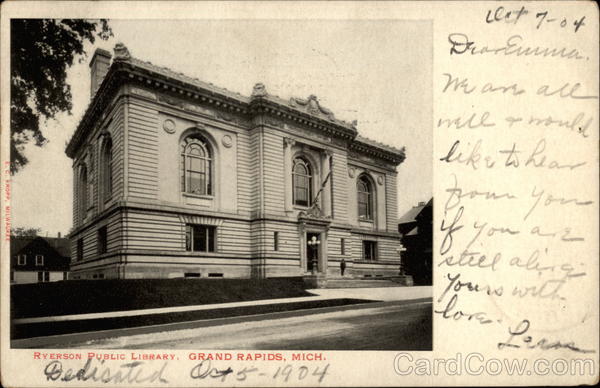 Oct 7-04
Dear Emma.
We are all
well & would
like to hear
from you
if you are
still alive.
Yours with
love.
E. C. KROPP, MILWAUKEE
RYERSON PUBLIC LIBRARY, GRAND RAPIDS, MICH.
Dedicated Oct 5-1904
CardCow.com